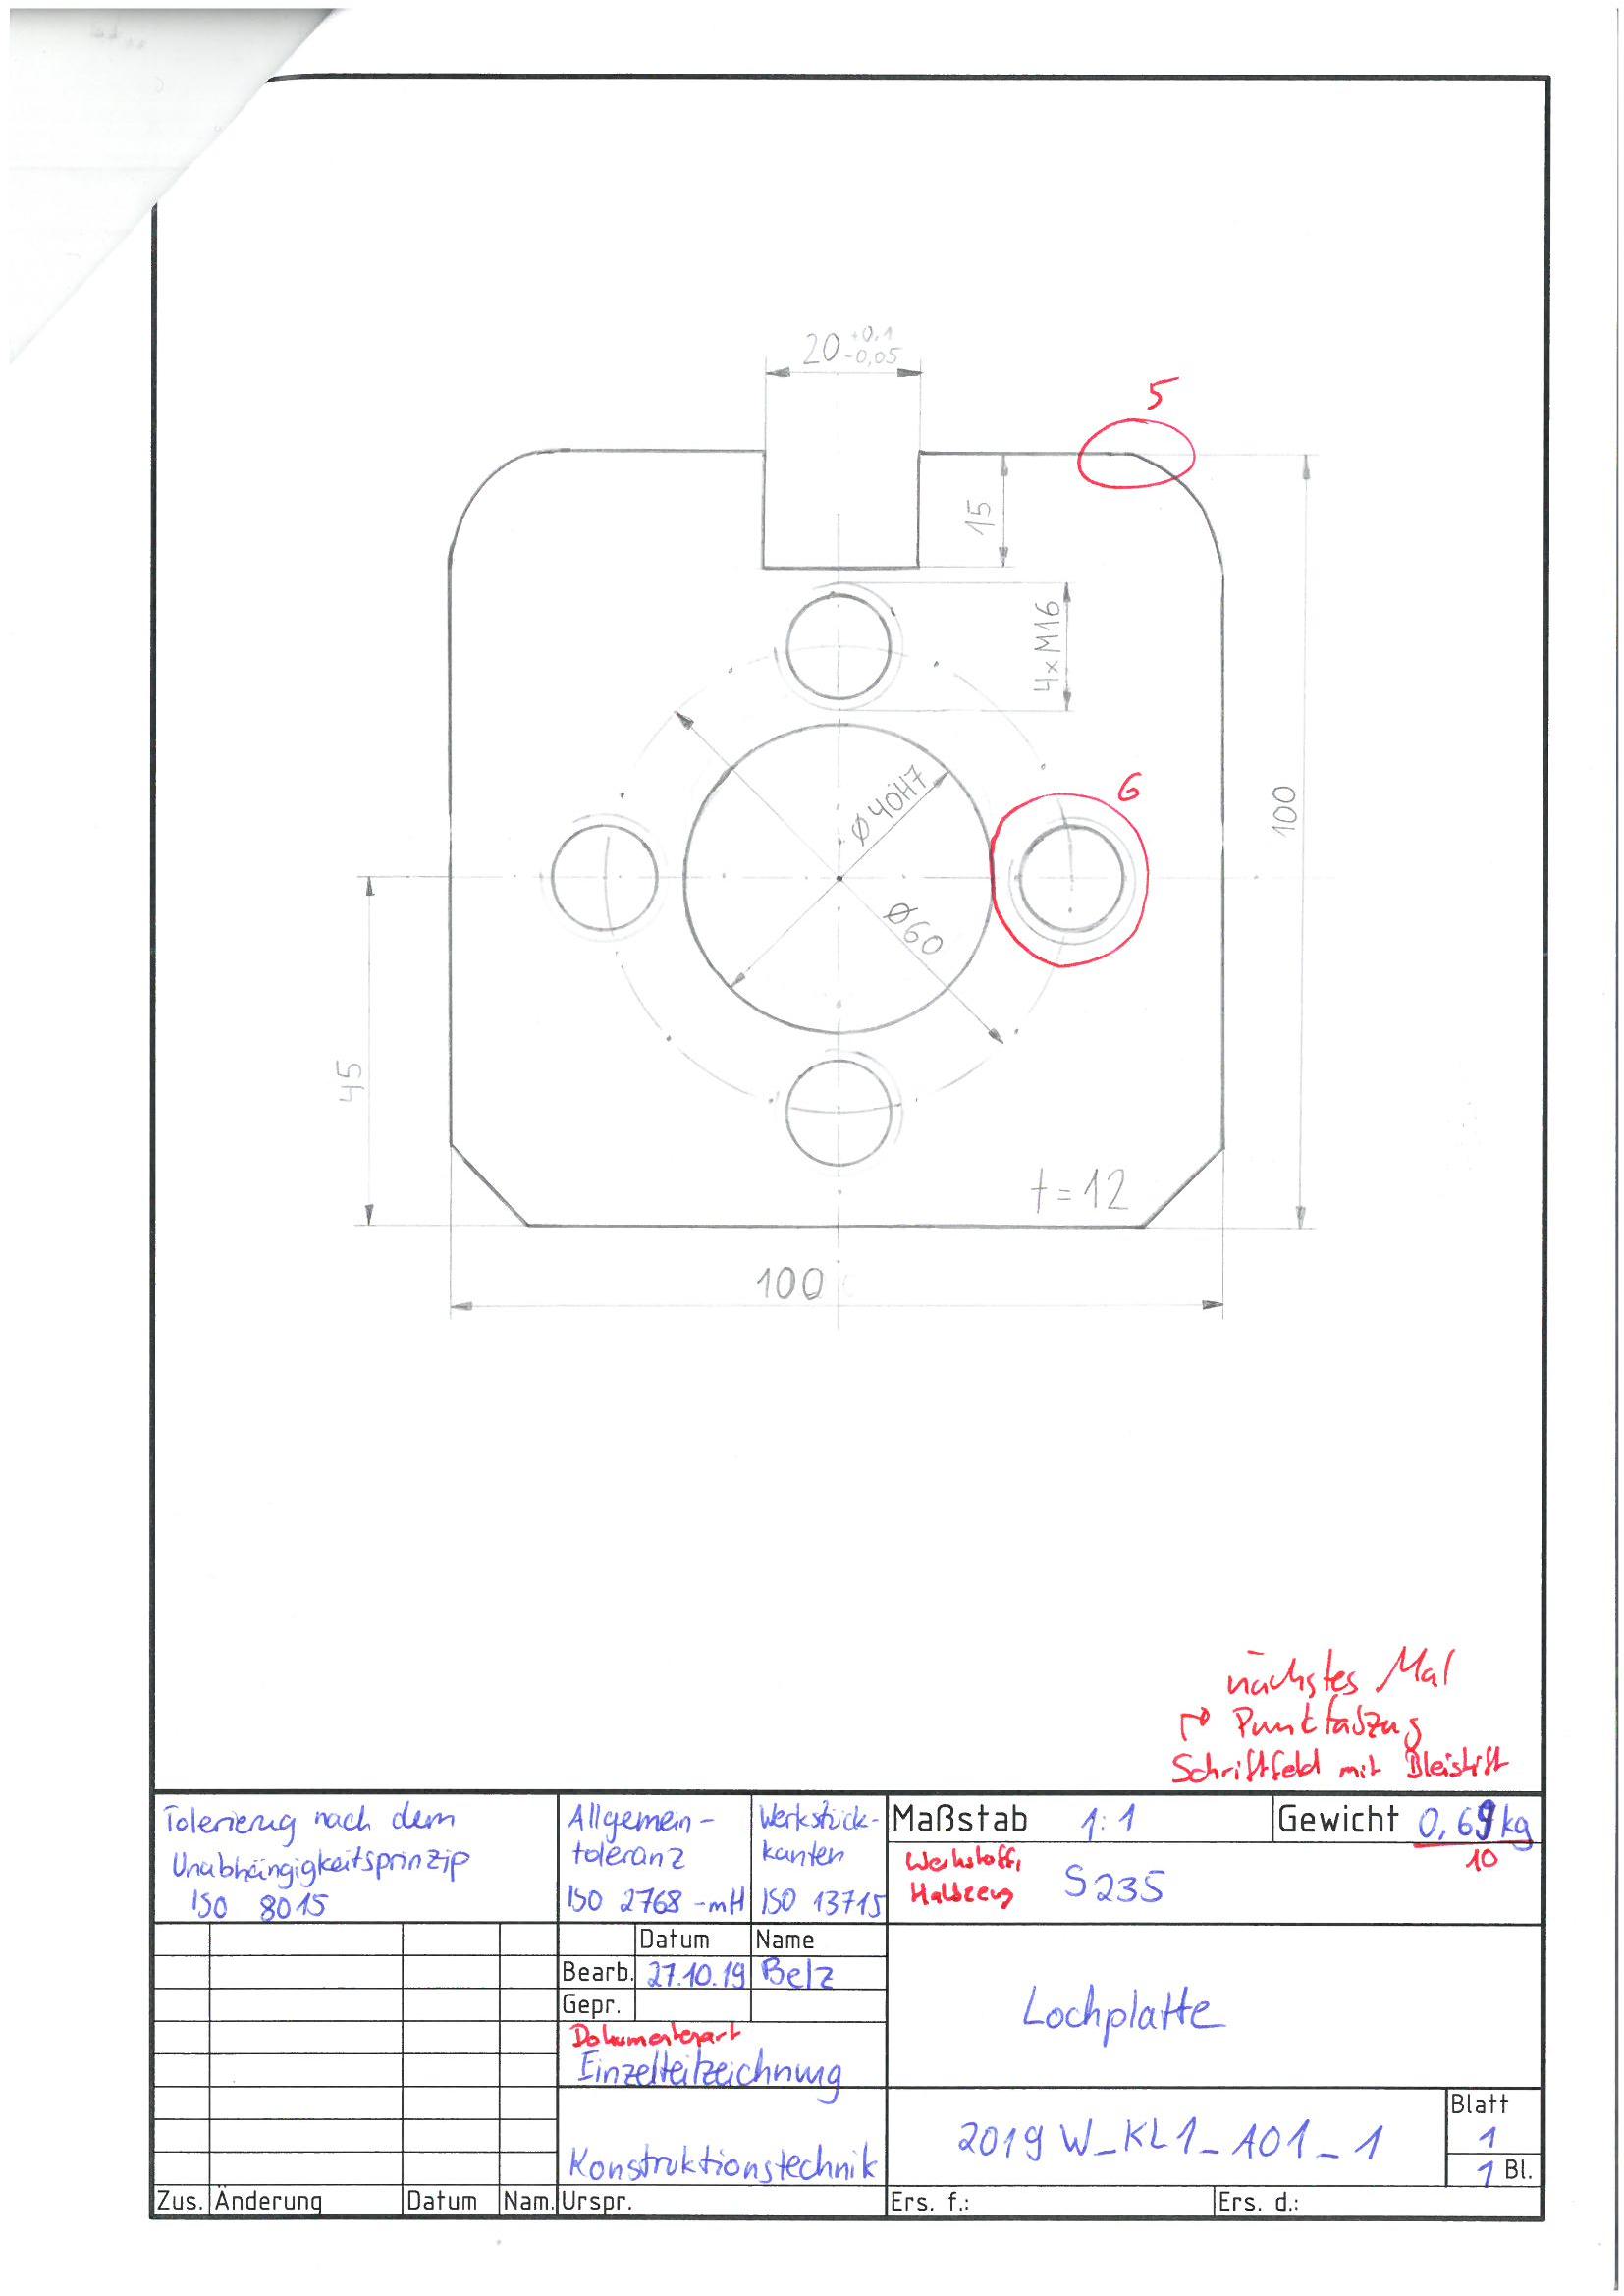 20 +0,1
-0,05
5
15
4xM16
6
Ø40H7
100
Ø60
45
t=12
100
nächstes Mal
Punktabzug
Schriftfeld mit Bleistift
Tolerierug nach dem
Unabhängigkeitsprinzip
ISO 8015
Allgemein-
toleranz
ISO 2768-mH
Werkstück-
kanten
ISO 13715
Maßstab 1:1
Gewicht 0,69kg
10
Werkstoff,
Halbzeug
S235
Datum Name
Bearb. 27.10.19 Belz
Gepr.
Dokumentenart
Einzelteilzeichnung
Lochplatte
Konstruktionstechnik
2019W_KL1_A01_1
Blatt
1
1 Bl.
Zus. Änderung Datum Nam. Urspr. Ers. f.: Ers. d.: